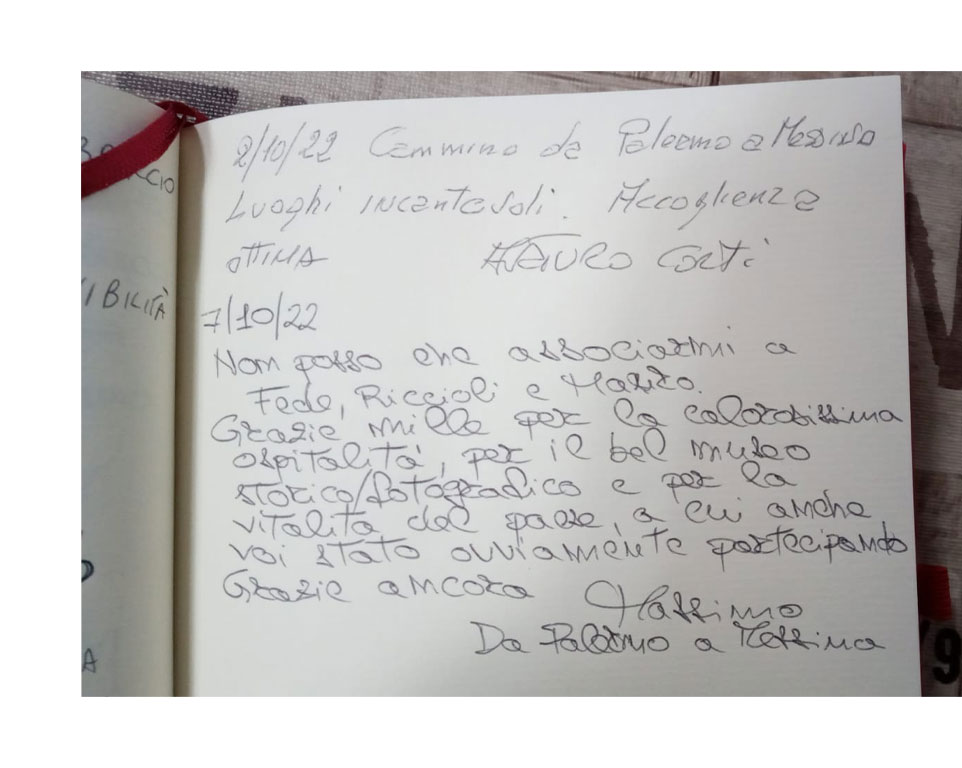 2/10/22 Cammino da Palermo a Messina
Luoghi incantevoli. Accoglienza
OTTIMA
MAURO Corti
7/10/22
Non posso che associarmi a
Fede, Riccioli e Marito.
Grazie mille per la calorosissima
ospitalità, per il bel museo
storico/fotografico e per la
vitalità del paese, a cui anche
voi stato ovviamente partecipando
Grazie ancora
Massimo
Da Palermo a Messina
CCIO
IBILITÀ
A